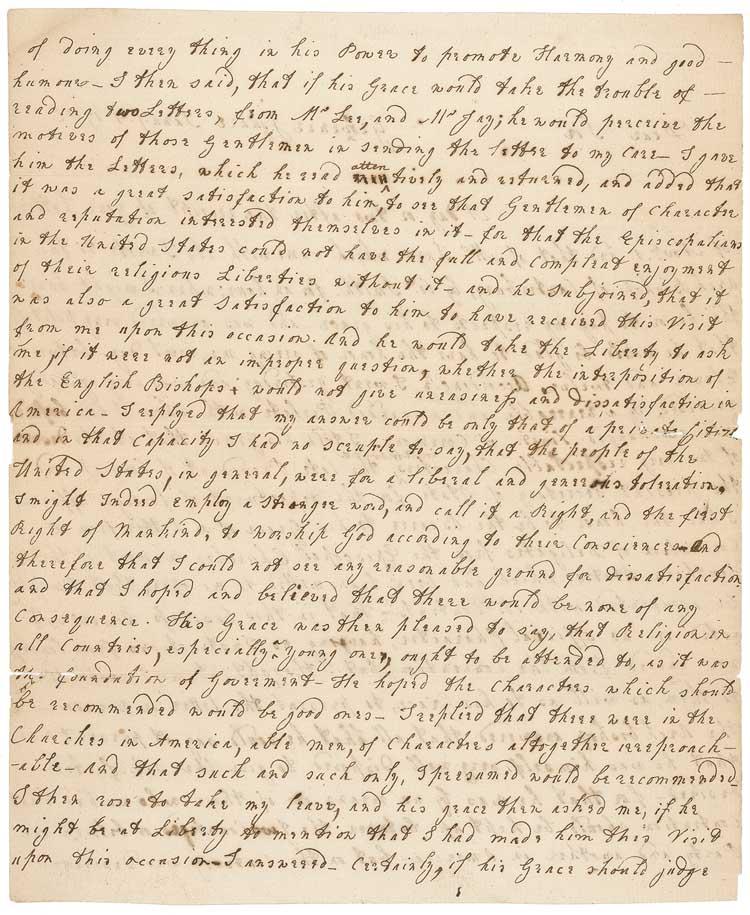 of doing every thing in his Power to promote Harmony and good —
humour — I then said, that if his Grace would take the trouble of —
reading two Letters, from Mr Lee, and Mr Jay; he would perceive the
motives of those Gentlemen in sending the letter to my Care — I gave
him the Letters, which he read attentively and returned, and added that
it was a great satisfaction to him, to see that Gentlemen of Character
and reputation interested themselves in it — for that the Episcopalians
in the United States could not have the full and Compleat enjoyment
of their religious Liberties without it — and he subjoined, that it
was also a great Satisfaction to him to have received this Visit
from me upon this occasion. And he would take the Liberty to ask
me, if it were not an improper question, whether the interposition of
the English Bishops would not give uneasiness and dissatisfaction in
America — I replyed that my answer could be only that of a private Citizen
and in that Capacity I had no scruple to say, that the people of the
United States, in general, were for a liberal and generous toleration.
I might Indeed Employ a stronger word, and call it a Right, and the first
Right of Mankind, to worship God according to their Consciences — and
therefore that I could not see any reasonable ground for dissatisfaction
and that I hoped and believed that there would be none of any
Consequence. His Grace was then pleased to say, that Religion in
all Countries, especially young ones, ought to be attended to, as it was
the foundation of Goverment — He hoped the Characters which should
be recommended would be good ones — I replied that there were in the
Churches in America, able men, of Characters altogether irreproach—
-able — and that such and such only, I presumed would be recommended —
I then rose to take my leave, and his grace then asked me, if he
might be at Liberty to mention that I had made him this Visit
upon this occasion — I answered — Certainly, if his Grace should judge